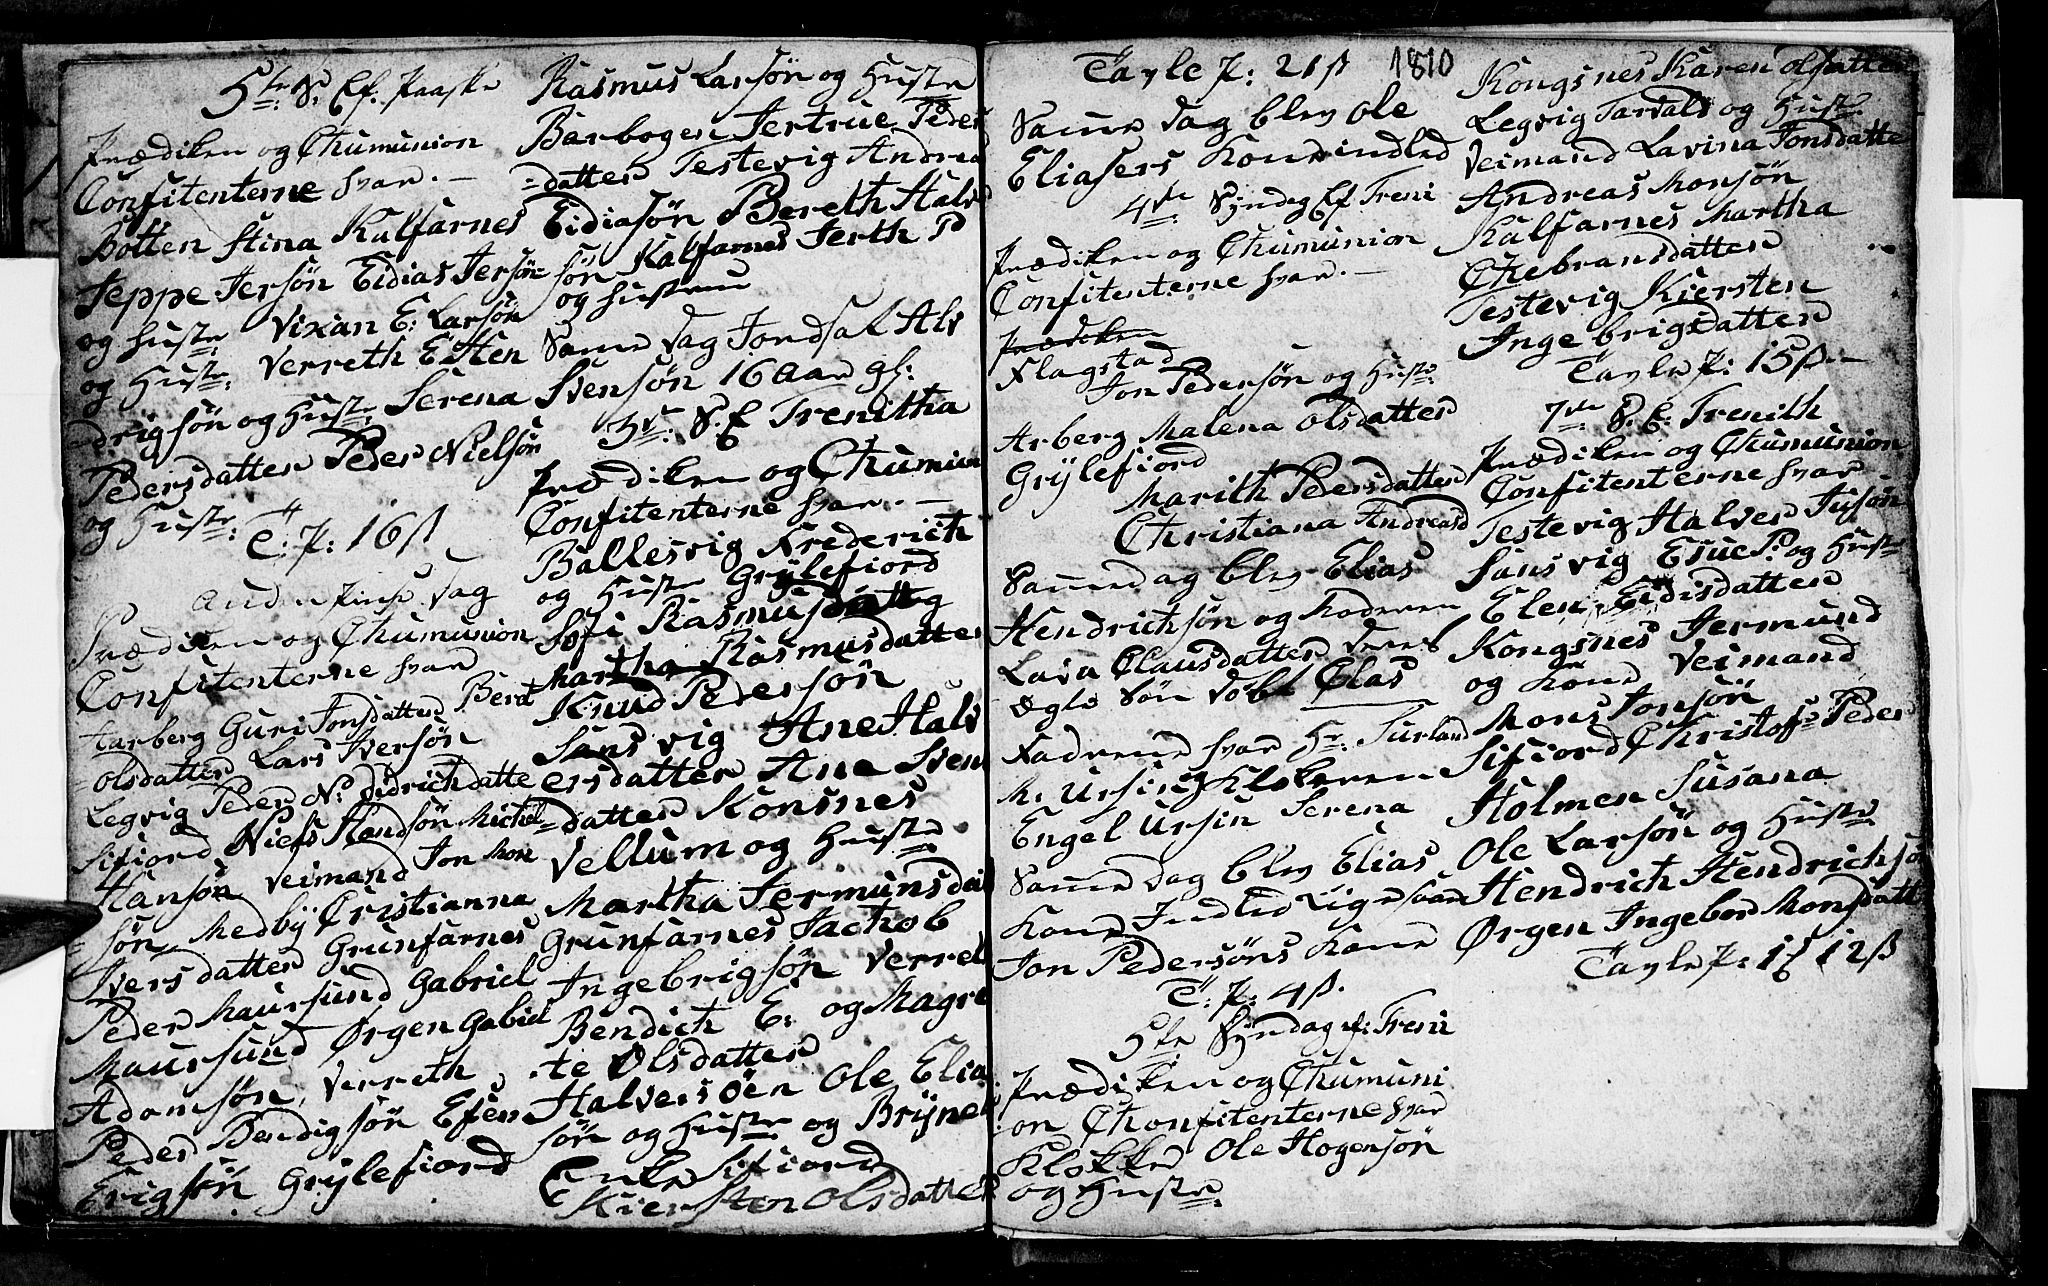 5te S. Ef. Paaske
Prædiken og Chumunion
Confitenterne hvar. —
Botten Stina Kalfarnes
Jeppe Jersön Eidias Jersön
og Hustr Vixan E: Larsön
og Hustr: Verreth E Hen
=drigsön og Hustr: Serena
Pedersdatter Peder Nielsön
og Hustr:
T: P: 16 ß
Anden Pinse Dag
Prædiken og Chumunion
Confitenterne hvar
Aarberg Guri Jonsdatter Berit
=olsdatter Lars Iversön
Legvig Peder N: Didrichdatte
Sifiord Niels Handsön Michel
Hansön Veimand Jon Mon
=sön Medbÿ Cristianna
Iversdatter Grunfarnes
Peder Maursund Gabriel
Maursund Ørgen Gabiel
Adamsön, Verreth
Peder Bendigsön Efen
Erigsön Grÿlefiord
Rasmus Larsön og Hustr
Barbogen Jertrue Peder
=datter Testevig Andrea
Eidiasön Bereth Halv
sön Kalfarnes Jerth P
og Hustru
Same Dag Jondsal Alv
Svensön 16 Aar gl:
3die: S. Ef Trenitha
Prædiken og Chumiun
Confitenterne hvar. —
Ballesvig Frederich
og Hustr Grÿlefiord
Sofi Rasmusdatter
Martha Rasmusdatter
Knud Pedersön
Sans vig Ane Halv
ersdatter Ane Sven
=datter Konsnes
Vellum og Hustr
Martha Jermunsdat
Grunfarnes Jachob
Ingebrigsön Verret
Bendich E: og Magre
-te Olsdatter
Halversöen Ole Elia
sön og Hustr og Brÿnel
Enke Sifiord
Kiersten Olsdatter
Tavle P: 21 ß 1810
Same Dag blev Ole
Eliasers Kone indled
4de Syndag Ef Treni
Prædiken og Chumunion
Confitenterne hvar. —
Prædiken
Flagstad
Jon Pedersön og Hustr:
Arberg Malena Olsdatter
Grÿlefiord
Marith Pedersdatter
Christiana Andreasd
Same dag blev Elias
Hendrichsön og
Lava Clausdatter deres
Ægte Sön döbt Clas
Fadrene hvar Hr: Surland
M. Ursin, Klokeren
Engel Ursin Serena
Same Dag blev Elias
Kone Indled Ligesaa
Jon Pedersöns Kone
T: P: 4 ß.
5te Syndag ef: Treni
Prædiken og Chumuni
on Chonfitenterne hvar
Klokker Ole Hogensön
og Hustr
Kongsnes Karen Olsdatter
Legvig Tarvals og Hustr
Veimand Lavina Jonsdatte
Andreas Monsön
Kalfarnes Martha
Chebransdatter
Testevig Kiersten
Ingebrigsdatter
Tavle P: 15 ß —
7de S. E: Trenith
Prædiken og Chumunion
Confitenterne hvar
Testevig Halver Jusön
Sansvig Esue P: og Hustr
Elen Eidisdatter
Kongsnes Jermund
og Kone Veimand
Mons Jonsön
Sifiord Christofs Peder
Holmen Susana
Ole Larsön og Hustr
Hendrich Hendrichsön
Ørgen Ingebor Monsdatt
Tavle P: 1 f 12 ß